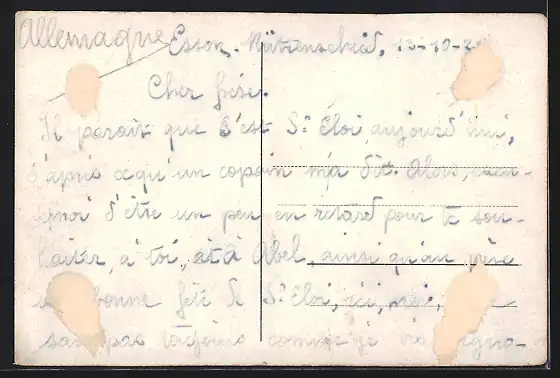 Allemagne
Essen. 13-10-2
Cher frère.
Il parait que c'est St Éloi aujourd'hui,
d'après ce qu'un copain m'a dit. Alors, excu-
moi d'être un peu en retard pour te sou-
haiter, à toi, et à Abel, ainsi qu'au père
bonne fête de St Éloi, ici, moi,
sais pas toujours comme je vis